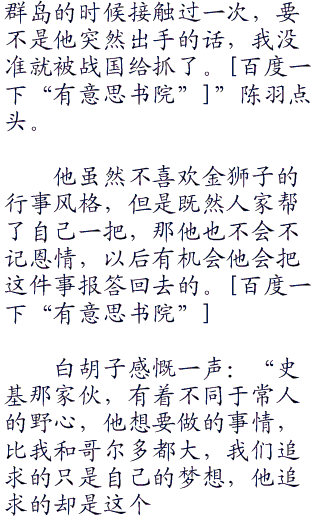 群岛的时候接触过一次，要
不是他突然出手的话，我没
准就被战国给抓了。[百度一
下“有意思书院”]”陈羽点
头。
他虽然不喜欢金狮子的
行事风格，但是既然人家帮
了自己一把，那他也不会不
记恩情，以后有机会他会把
这件事报答回去的。[百度一
下“有意思书院”]
白胡子感慨一声：“史
基那家伙，有着不同于常人
的野心，他想要做的事情，
比我和哥尔多都大，我们追
求的只是自己的梦想，他追
求的却是这个